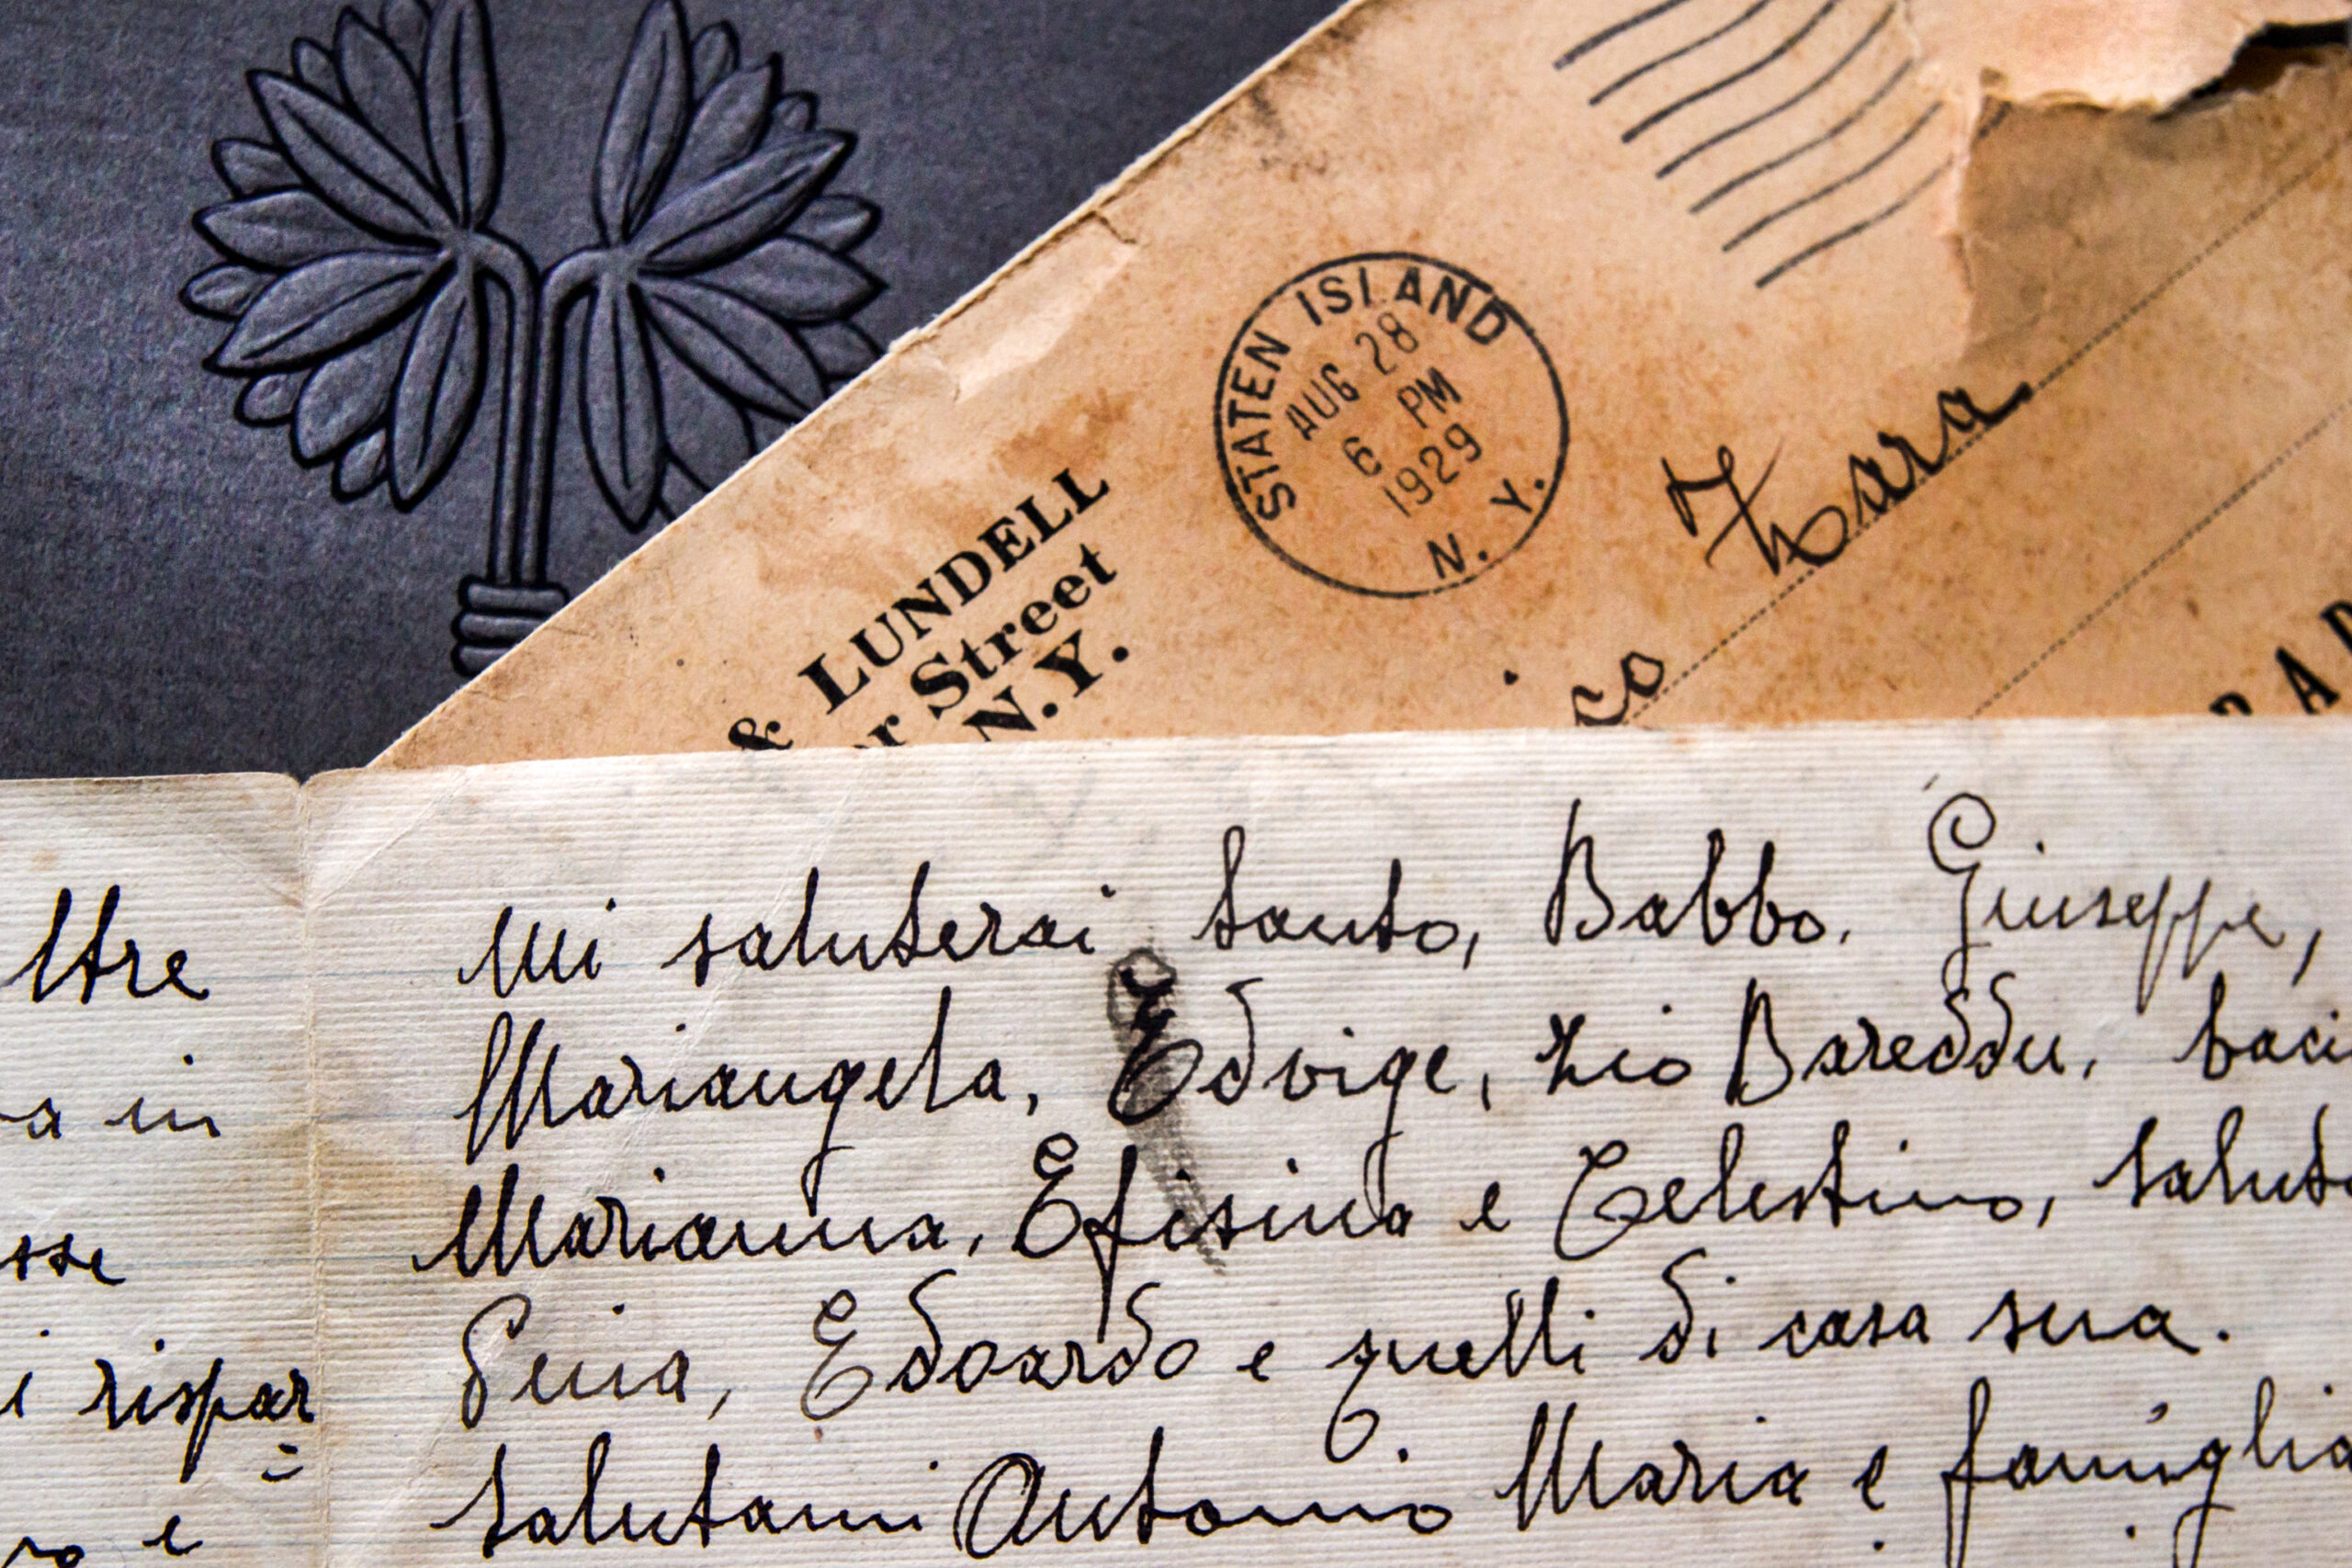 STATEN ISLAND
AUG 28
6 PM
1929
N. Y.
& LUNDELL
r Street
N.Y.
Zara
co
ltre
a in
sse
i rispar
e
Mi saluterai tanto, Babbo. Giuseppe,
Mariangela, Edvige, zio Bareddu, baci
Marianna, Efisina e Celestino, salut
Peina, Edoardo e quelli di casa sua.
Salutami Antonio Maria e famiglia